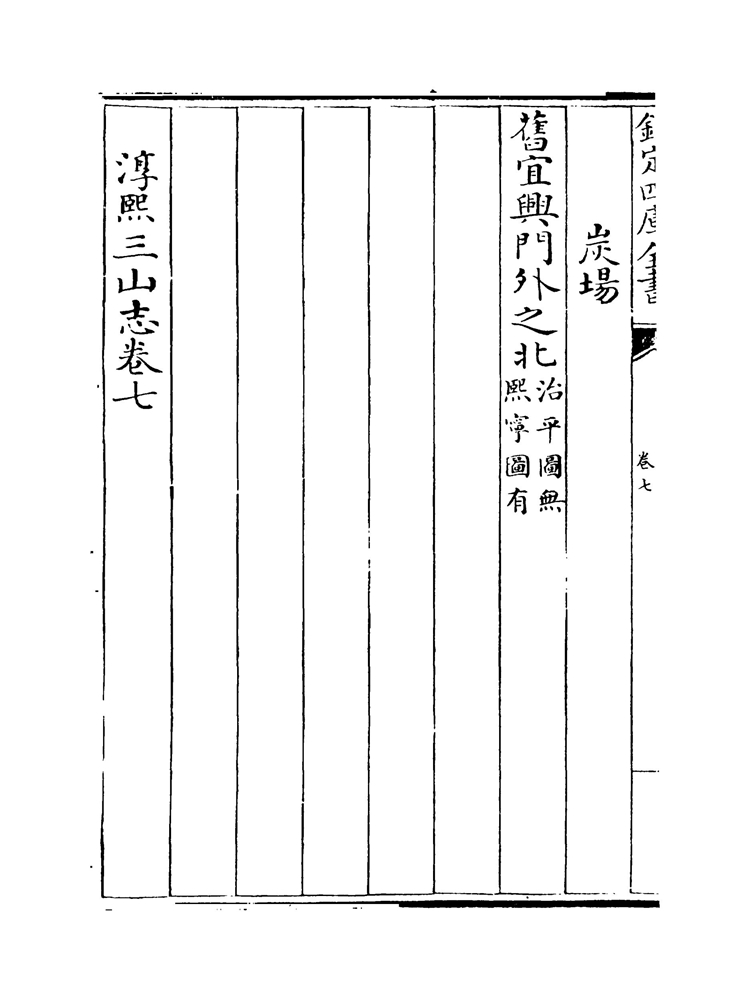 欽定四庫全書
卷七
炭場
舊宜興門外之北治平圖無
熙寧圖有
淳熙三山志卷七